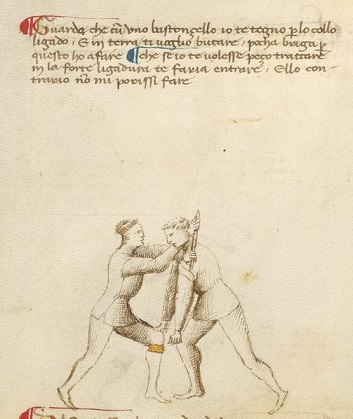 Guarda che cū uno bastonçello io te tegno p lo collo
ligado, E in terra ti voglio butare, pocha briga p
questo ho a fare che se io te volesse peço trattare
in la forte ligadura te faria entrare, E llo con-
trario nō mi porissi fare